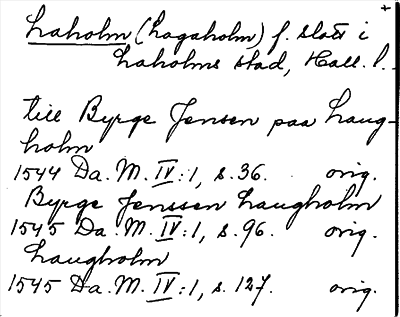 +
Laholm (Lagaholm) f. slott i
Laholms stad, Hall. l.
till Byrge Jensen paa Laug-
holm
1544 Da. M. IV:1, s. 36. orig.
Byrge Jenssen Laugholm
1545 Da. M. IV:1, s. 96. orig.
Laugholm
1545 Da. M. IV:1, s. 127. orig.